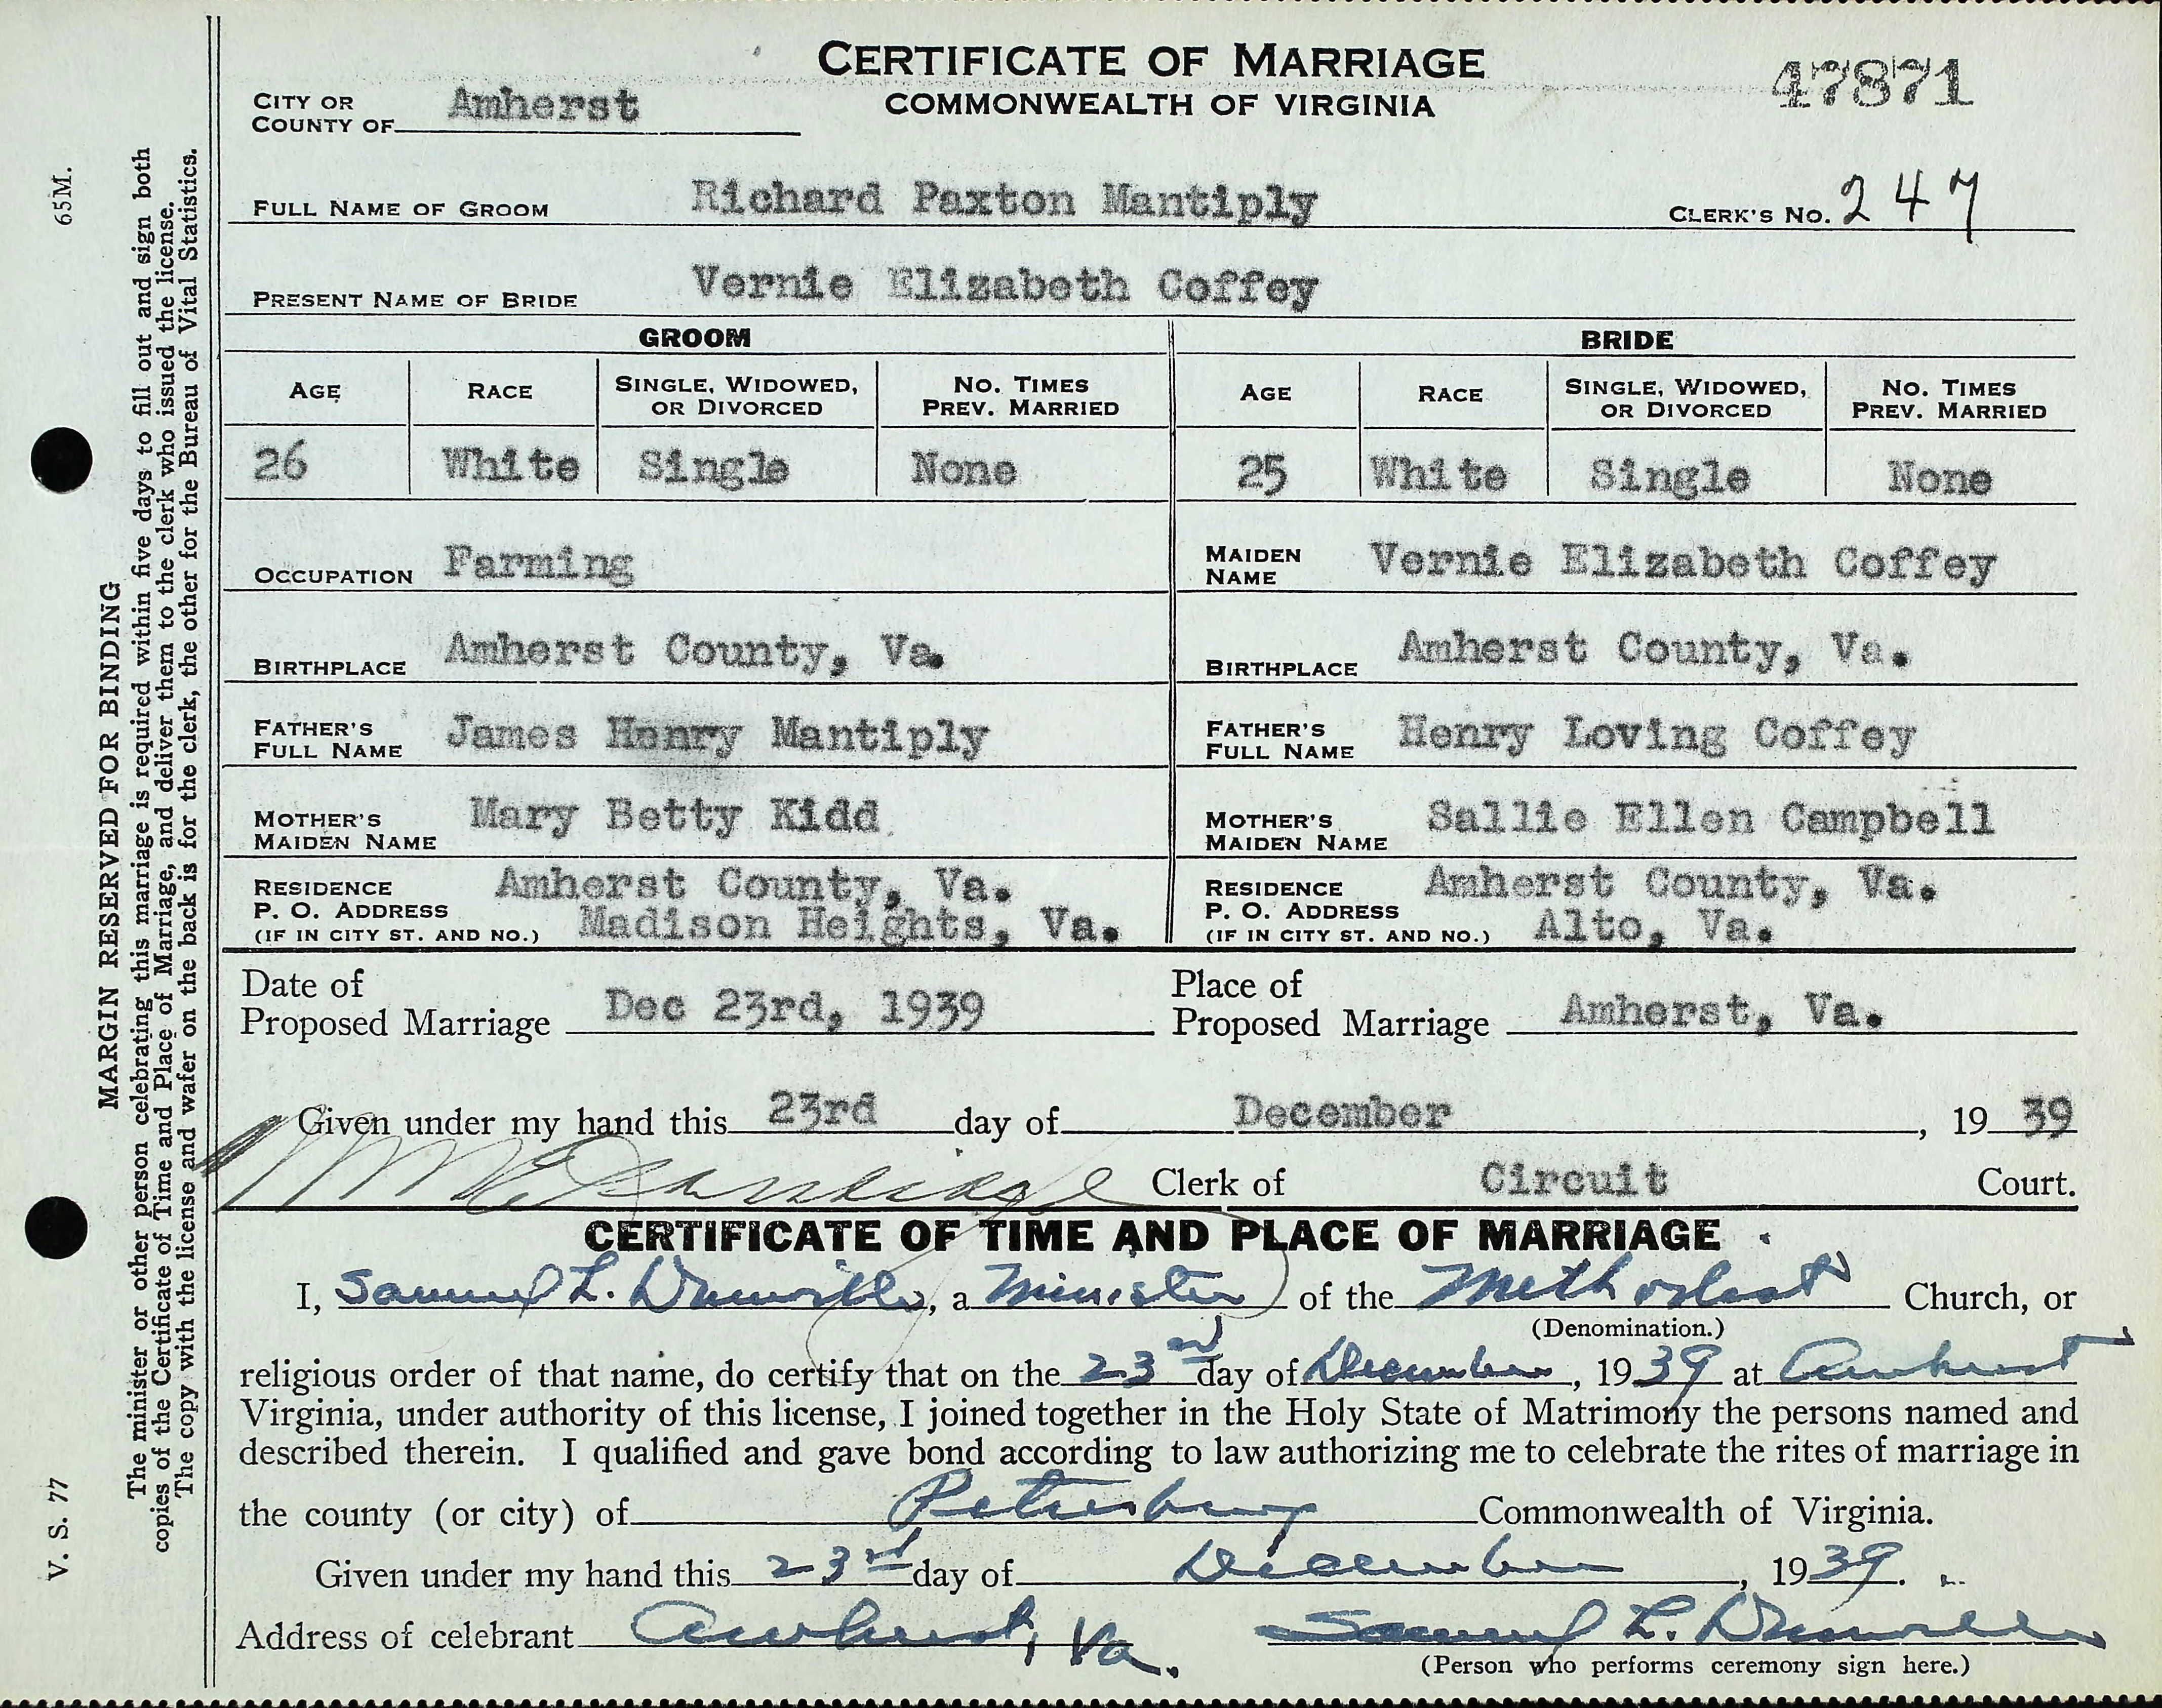 CERTIFICATE OF MARRIAGE
COMMONWEALTH OF VIRGINIA
47871
CITY OR COUNTY OF Amherst
FULL NAME OF GROOM Richard Paxton Mantiply CLERK'S NO. 247
PRESENT NAME OF BRIDE Vernie Elizabeth Coffey
GROOM
AGE RACE SINGLE, WIDOWED, OR DIVORCED NO. TIMES PREV. MARRIED
26 White Single None
OCCUPATION Farming
BIRTHPLACE Amherst County, Va.
FATHER'S FULL NAME James Henry Mantiply
MOTHER'S MAIDEN NAME Mary Betty Kidd
RESIDENCE Amherst County, Va.
P. O. ADDRESS Madison Heights, Va.
(IF IN CITY ST. AND NO.)
BRIDE
AGE RACE SINGLE, WIDOWED, OR DIVORCED NO. TIMES PREV. MARRIED
25 White Single None
MAIDEN NAME Vernie Elizabeth Coffey
BIRTHPLACE Amherst County, Va.
FATHER'S FULL NAME Henry Loving Coffey
MOTHER'S MAIDEN NAME Sallie Ellen Campbell
RESIDENCE Amherst County, Va.
P. O. ADDRESS Alto, Va.
(IF IN CITY ST. AND NO.)
Date of Proposed Marriage Dec 23rd, 1939 Place of Proposed Marriage Amherst, Va.
Given under my hand this 23rd day of December, 1939
Clerk of Circuit Court.
CERTIFICATE OF TIME AND PLACE OF MARRIAGE
I, Samuel L. , a Minister of the Methodist Church, or
(Denomination.)
religious order of that name, do certify that on the 23rd day of December, 1939 at Amherst
Virginia, under authority of this license, I joined together in the Holy State of Matrimony the persons named and
described therein. I qualified and gave bond according to law authorizing me to celebrate the rites of marriage in
the county (or city) of Petersburg Commonwealth of Virginia.
Given under my hand this 23rd day of December, 1939.
Address of celebrant Amherst, Va. Samuel L.
(Person who performs ceremony sign here.)
65M.
V. S. 77
MARGIN RESERVED FOR BINDING
The minister or other person celebrating this marriage is required within five days to fill out and sign both
copies of the Certificate of Time and Place of Marriage, and deliver them to the clerk who issued the license.
The copy with the license and wafer on the back is for the clerk, the other for the Bureau of Vital Statistics.